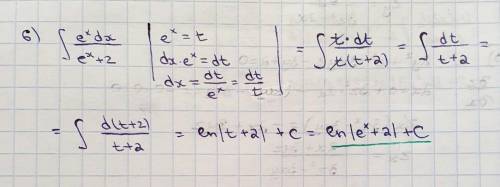 6) ∫ eˣdx / eˣ+2 | eˣ = t
dx·eˣ = dt
dx = dt/eˣ = dt/t | = ∫ t·dt / t(t+2) = ∫ dt / t+2 =
= ∫ d(t+2) / t+2 = ln|t+2| + C = ln|eˣ+2| + C